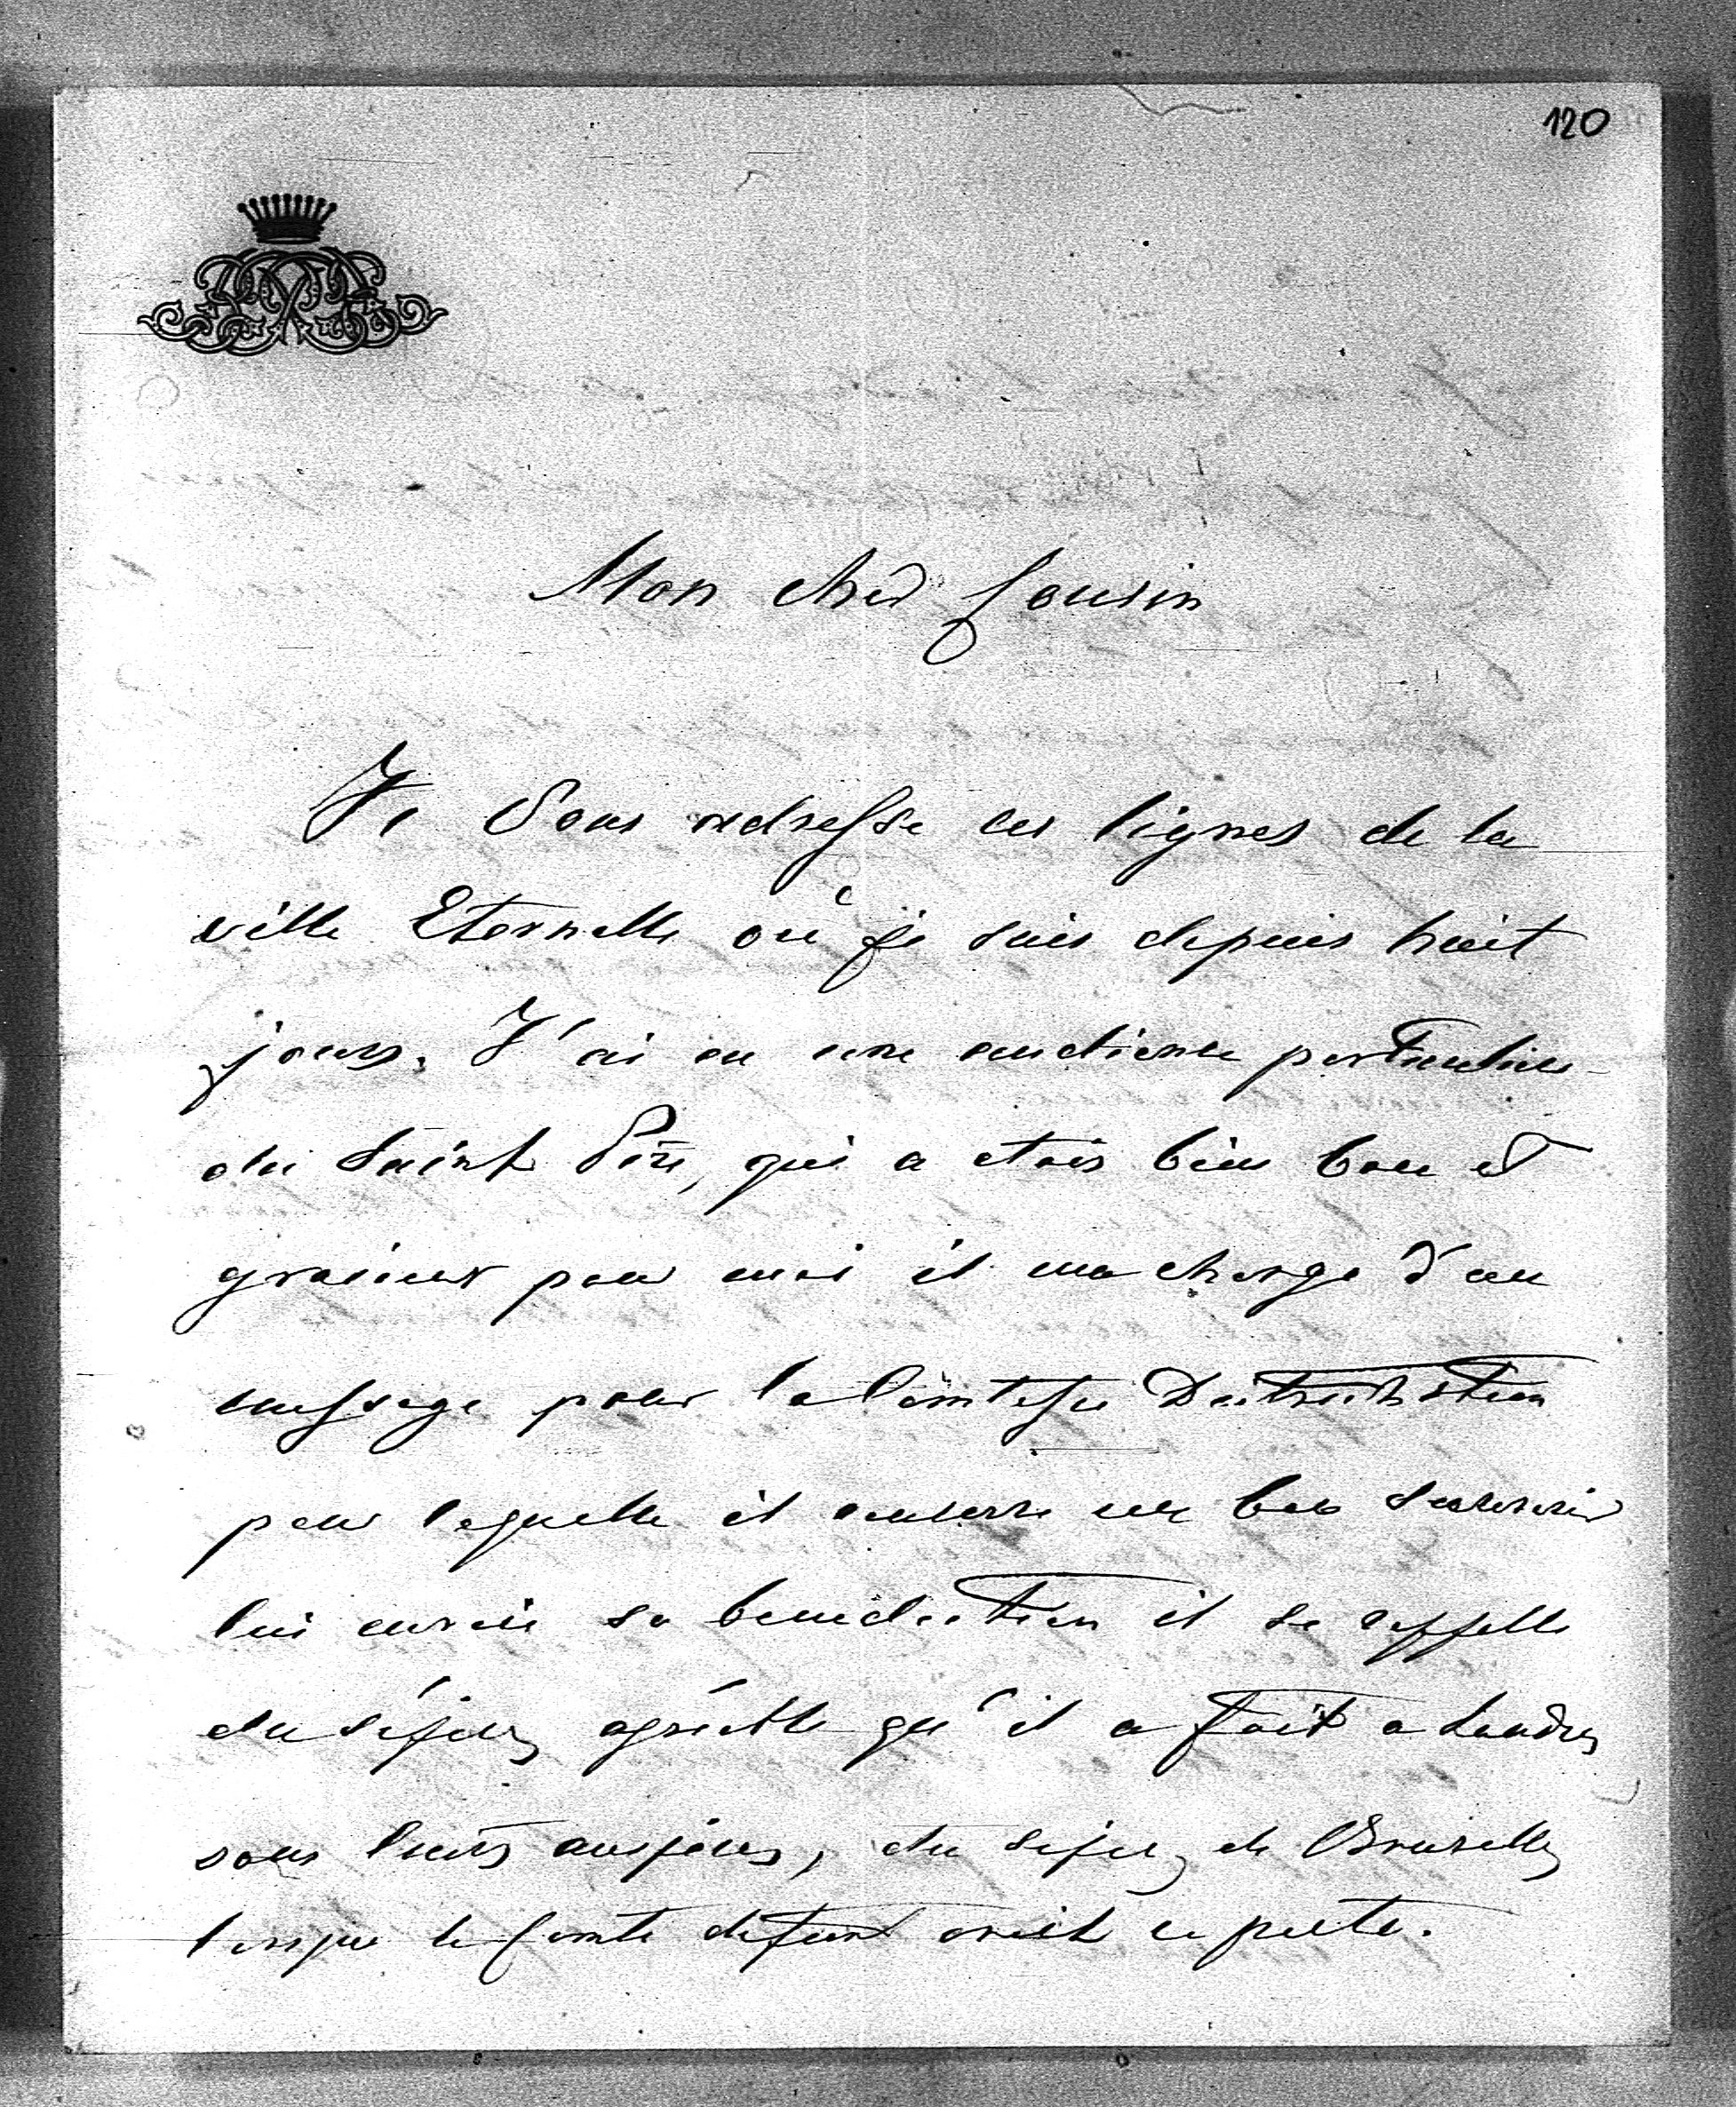 120
Mon cher Cousin
Je Vous adresse ces lignes de la
ville Eternelle où je suis depuis huit
jours. J'ai eu une audience particulière
du Saint Père, qui a etais bien bon et
gracieux pour moi il ma charge d'un
message pour la Comtesse Dietrichstein
pour laquelle il conserve un bon souvenir
lui envoie sa benediction il se rappelle
du séjour agréable qu'il a fait a Londres
sous leurs auspices, du sejour de Bruxelles
lorsque le Comte defunt avait ce poste.